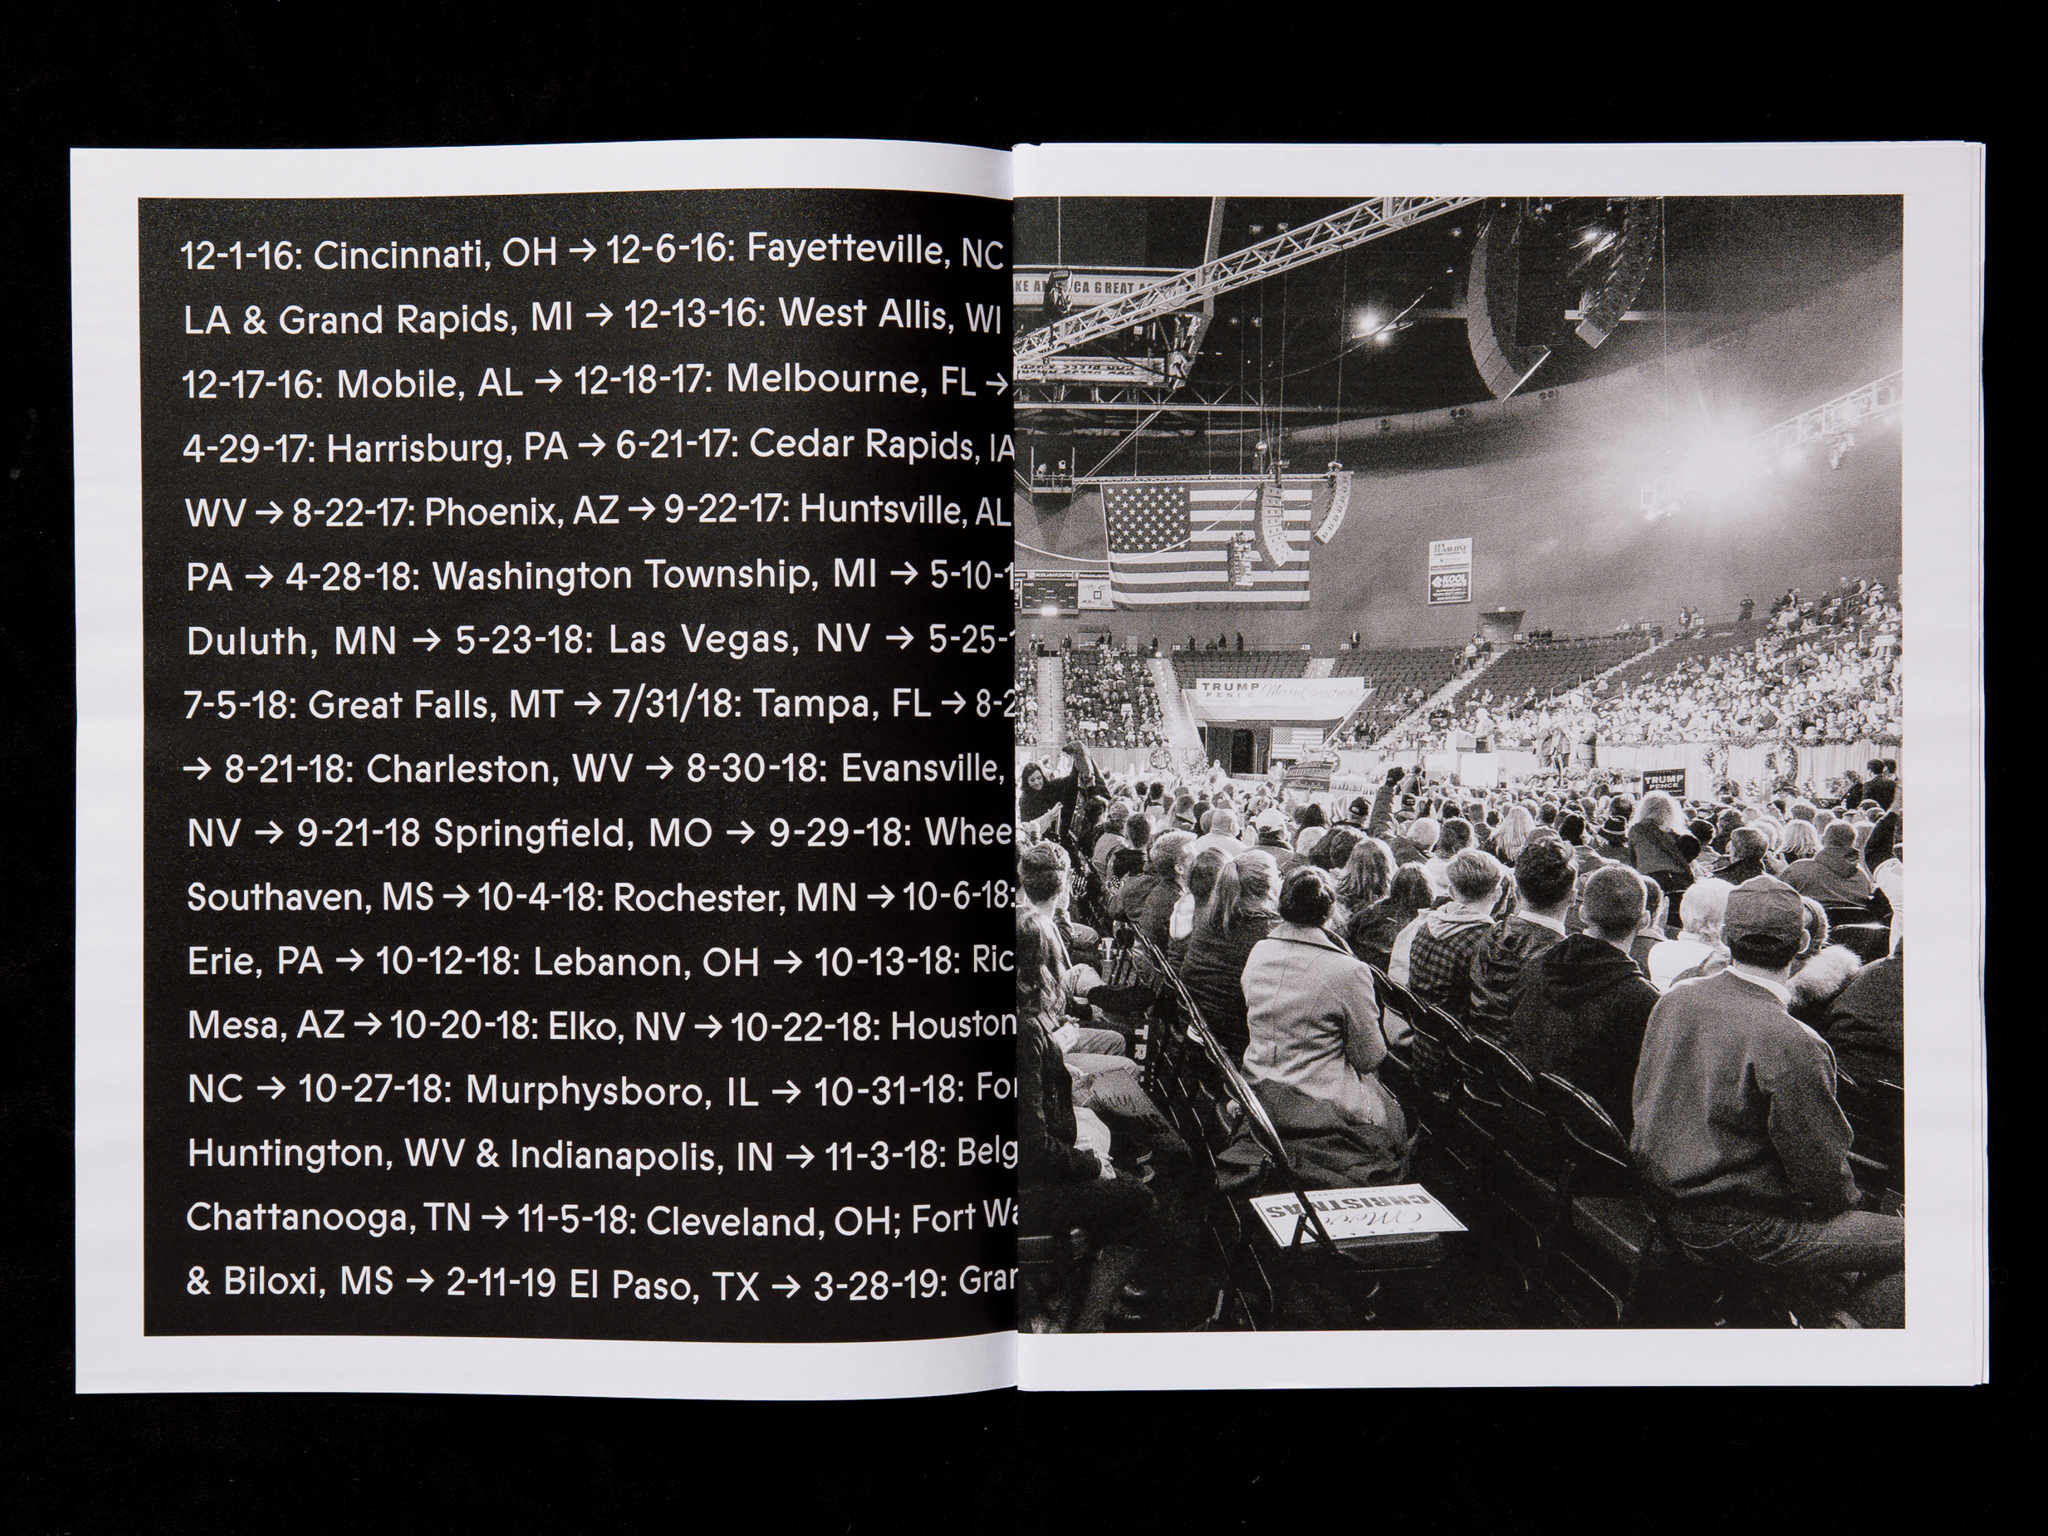 12-1-16: Cincinnati, OH → 12-6-16: Fayetteville, NC
LA & Grand Rapids, MI → 12-13-16: West Allis, WI
12-17-16: Mobile, AL → 12-18-17: Melbourne, FL →
4-29-17: Harrisburg, PA → 6-21-17: Cedar Rapids, IA
WV → 8-22-17: Phoenix, AZ → 9-22-17: Huntsville, AL
PA → 4-28-18: Washington Township, MI → 5-10-1
Duluth, MN → 5-23-18: Las Vegas, NV → 5-25-
7-5-18: Great Falls, MT → 7/31/18: Tampa, FL → 8-2
→ 8-21-18: Charleston, WV → 8-30-18: Evansville,
NV → 9-21-18 Springfield, MO → 9-29-18: Whee
Southaven, MS → 10-4-18: Rochester, MN → 10-6-18:
Erie, PA → 10-12-18: Lebanon, OH → 10-13-18: Ric
Mesa, AZ → 10-20-18: Elko, NV → 10-22-18: Houston
NC → 10-27-18: Murphysboro, IL → 10-31-18: For
Huntington, WV & Indianapolis, IN → 11-3-18: Belg
Chattanooga, TN → 11-5-18: Cleveland, OH; Fort Wa
& Biloxi, MS → 2-11-19 El Paso, TX → 3-28-19: Gran
KE AMERICA GREAT A
KOOL
TRUMP
PENCE
Merry Christmas
TRUMP
PENCE
TR
Merry
CHRISTMAS